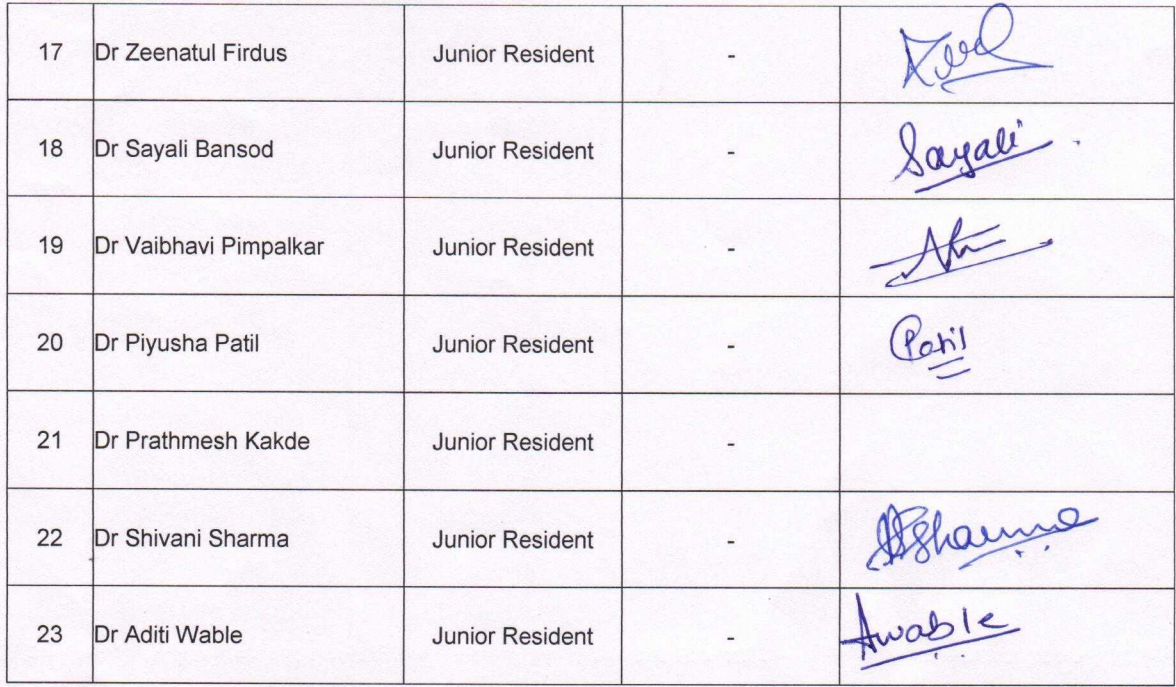 17 Dr Zeenatul Firdus Junior Resident -
18 Dr Sayali Bansod Junior Resident - Sayali
19 Dr Vaibhavi Pimpalkar Junior Resident -
20 Dr Piyusha Patil Junior Resident - Patil
21 Dr Prathmesh Kakde Junior Resident -
22 Dr Shivani Sharma Junior Resident - SSharma
23 Dr Aditi Wable Junior Resident - Awable